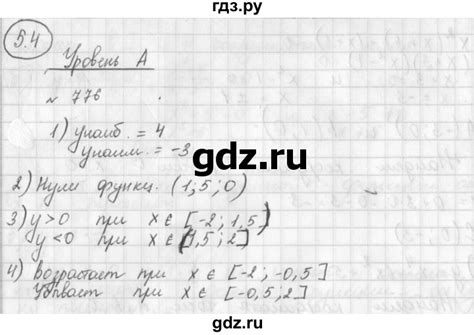 гдз.ру
5.4
Уровень А
№ 776
1) yнаиб. = 4
yнаим. = -3
gdz.ru
2) Нули функц. (1,5; 0)
3) y>0 при x ∈ [-2; 1,5)
y<0 при x ∈ (1,5; 2]
4) Возрастает при x ∈ [-2; -0,5]
Убывает при x ∈ [-0,5; 2]
gdz.ru